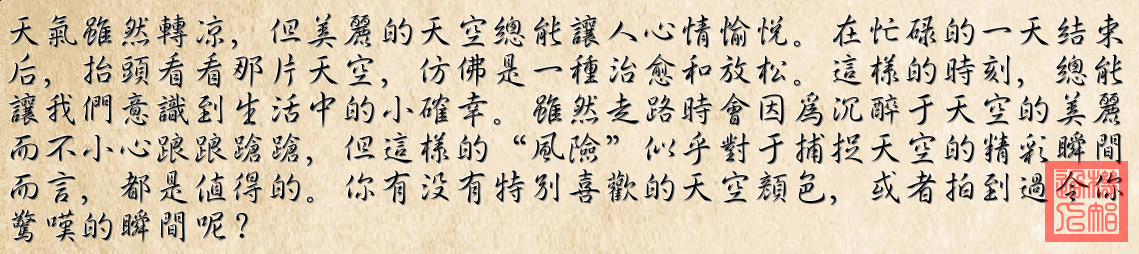 天氣雖然轉涼，但美麗的天空總能讓人心情愉悅。在忙碌的一天結束
后，抬頭看看那片天空，仿佛是一種治愈和放松。這樣的時刻，總能
讓我們意識到生活中的小確幸。雖然走路時會因為沉醉于天空的美麗
而不小心踉踉蹌蹌，但這樣的“風險”似乎對于捕捉天空的精彩瞬間
而言，都是值得的。你有没有特別喜歡的天空顏色，或者拍到過令你
驚嘆的瞬間呢？